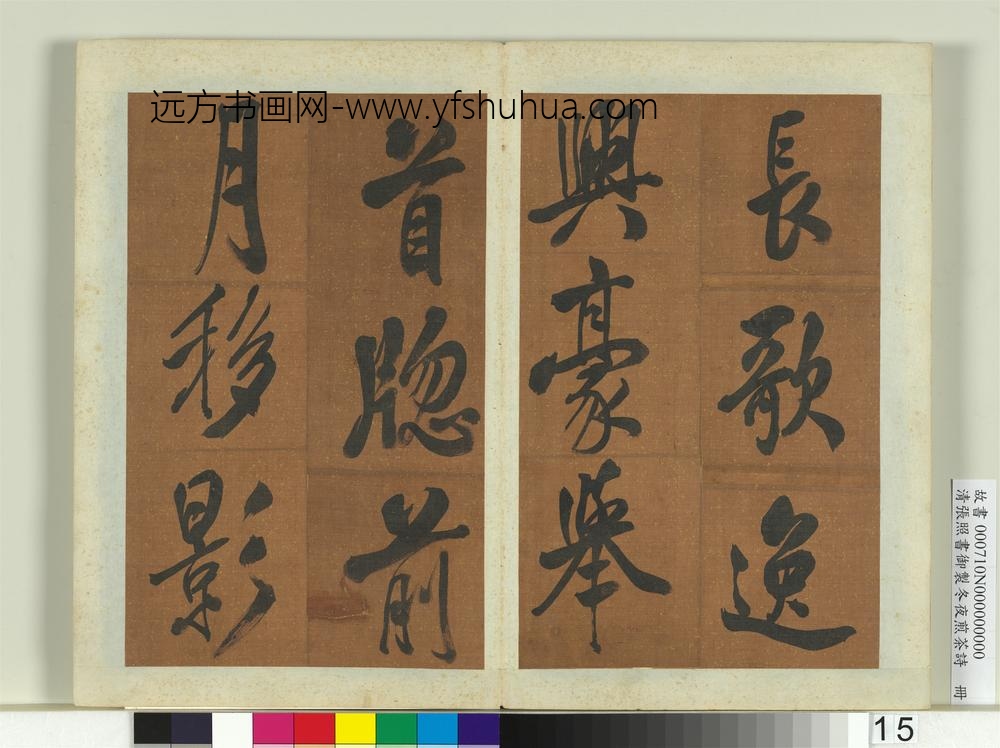 远方书画网-www.yfshuhua.com
長歌逸
興豪舉
首牕前
月移影
故書 000710N000000000
清張照書御製冬夜煎茶詩 冊
15